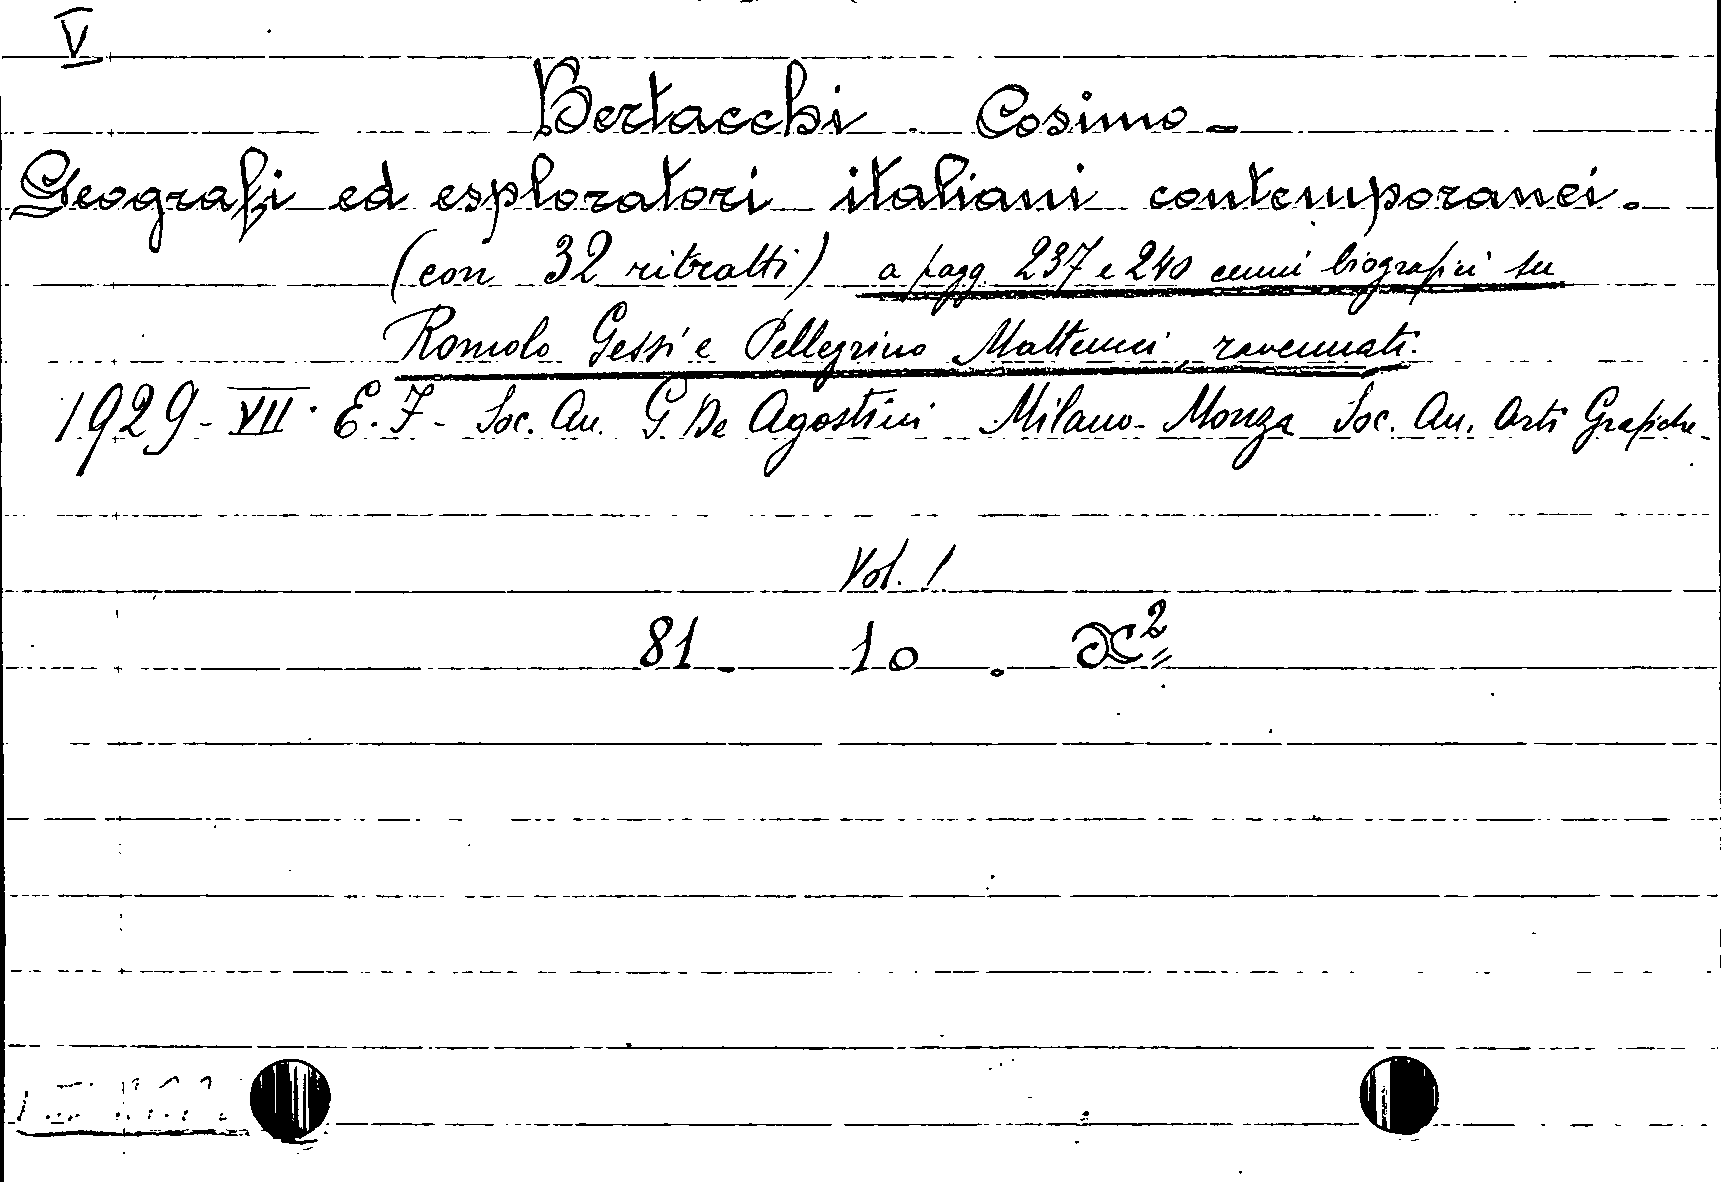 V
Bertacchi Cosimo -
Geografi ed esploratori italiani contemporanei.
(con 32 ritratti) a pagg. 237 e 240 cenni biografici su
Romolo Gessi e Pellegrino Matteucci, ravennati.
1929 - VII. E. F - Soc. An. G. De Agostini Milano - Monza Soc. An. Arti Grafiche -
Vol. 1
81 - 10 . X²